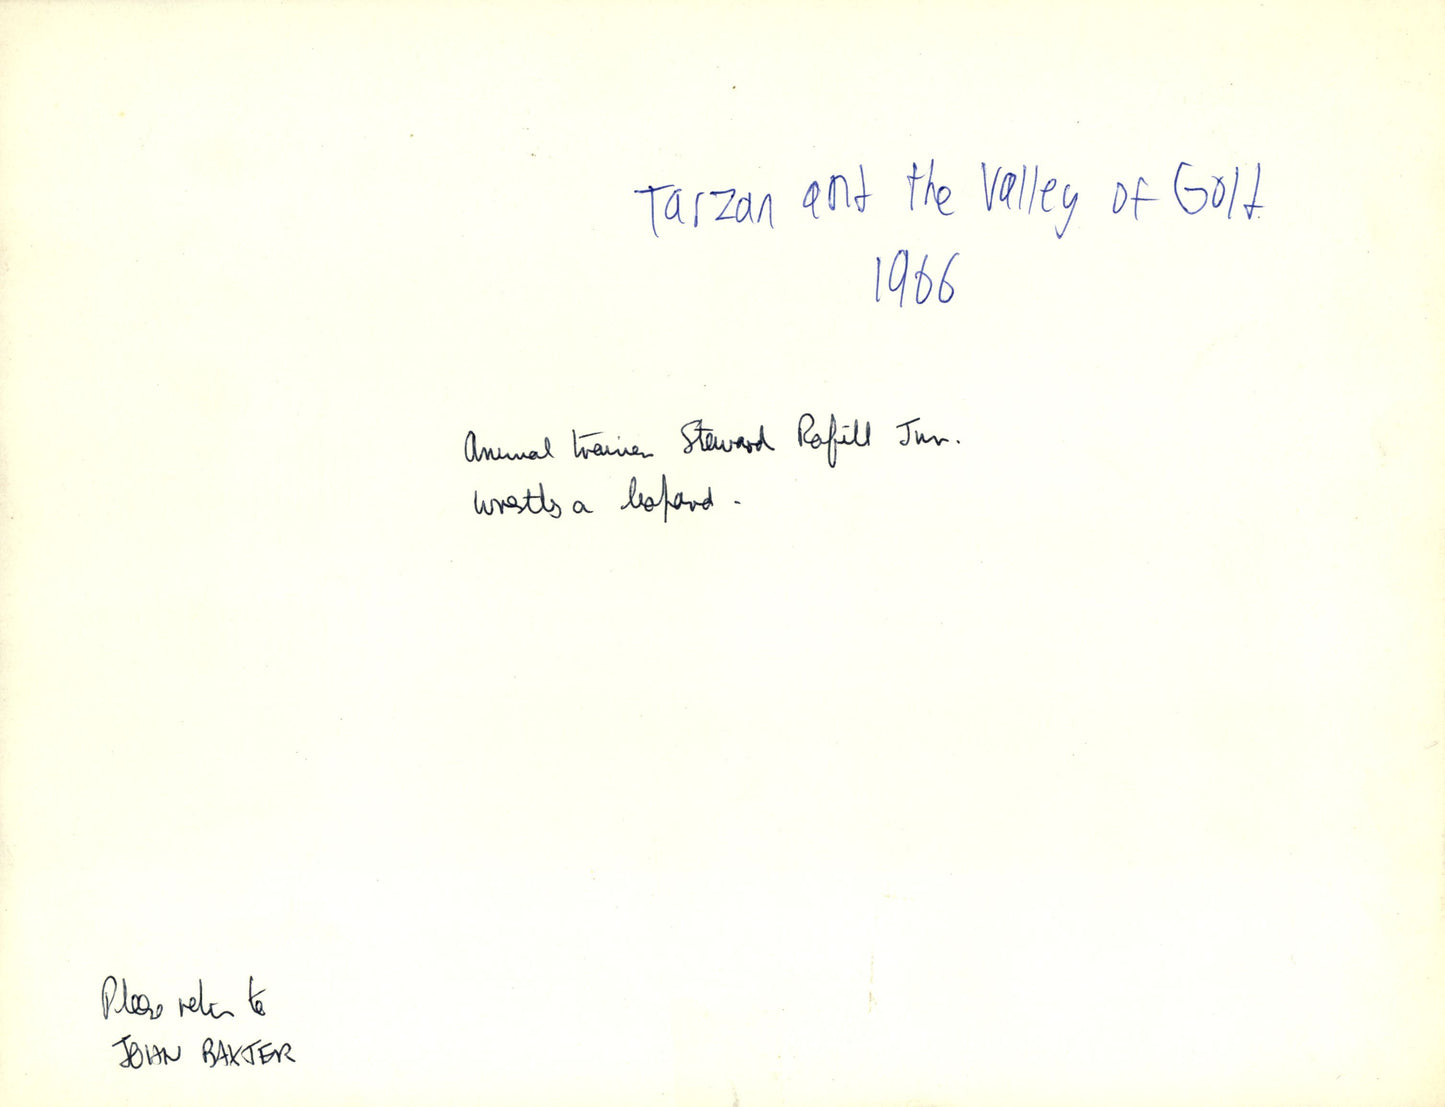 Tarzan and the Valley of Gold
1966
Animal trainer Steward Rafill Jnr.
wrestles a leopard -
Please return to
JOHN BAXTER